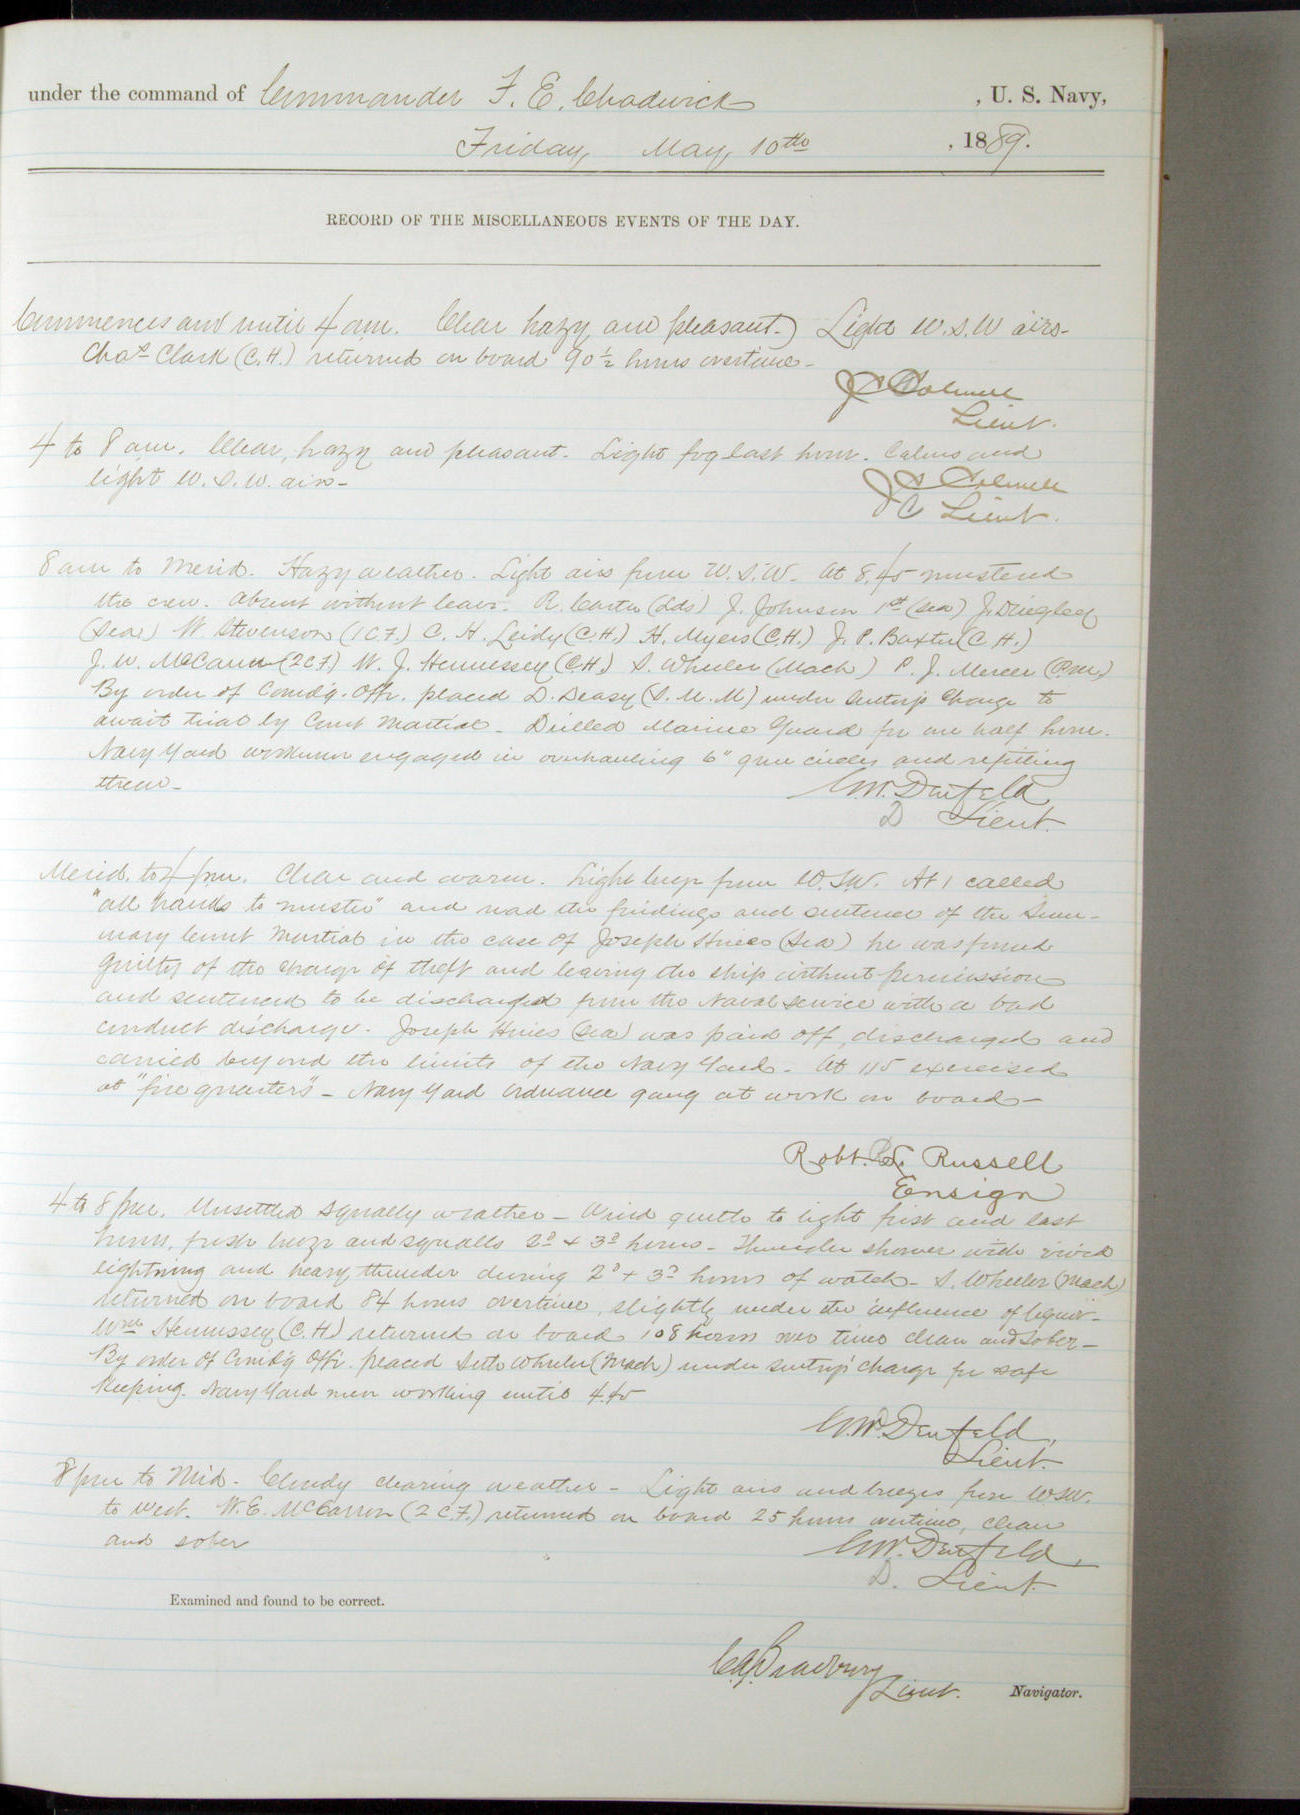 under the command of Commander F. E. Chadwick, U. S. Navy,
Friday, May 10th, 1889.
RECORD OF THE MISCELLANEOUS EVENTS OF THE DAY.
Commences and until 4 am. Clear hazy and pleasant. Light W.S.W airs-
Chas Clark (C.H.) returned on board 90 1/2 hours overtime-
J C Colwell
Lieut.
4 to 8 am. Clear, hazy and pleasant. Light fog last hour. Calms and
light W.S.W. airs-
J C Colwell
C Lieut.
8 am to Merid. Hazy weather. Light airs from W.S.W. At 8.45 mustered
the crew. Absent without leave. R. Carter (Lds) J. Johnson 1st (Sea) J.
(Sea) W Stevenson (1 C.F.) C. H. Leidy (C.H.) H. Myers (C.H.) J. P. Baxter (C.H.)
J. W. McCann (2 C.F.) W. J. Hennessey (C.H.) S. Wheeler (Mach) P. J. Mercer (P.M.)
By order of Comd'g. Offr. placed D. Deasy (S.M.M) under sentry's charge to
await trial by Court Martial- Drilled Marine Guard for one half hour.
Navy Yard workmen engaged in overhauling 6" gun circles and refitting
them-
G.W. Denfeld
D Lieut.
Merid. to 4 pm. Clear and warm. Light breeze from W.S.W. At 1 called
"all hands to muster" and read the findings and sentence of the Sum-
mary Court Martial in the case of Joseph (Sea) he was found
guilty of the charge of theft and leaving the ship without permission
and sentenced to be discharged from the Naval service with a bad
conduct discharge. Joseph (Sea) was paid off, discharged and
carried beyond the limits of the Navy Yard- At 1 15 exercised
at "fire quarters"- Navy Yard Ordnance gang at work on board-
Robt. L. Russell
Ensign
4 to 8 pm. Unsettled squally weather- Wind gentle to light first and last
hours, fresh breeze and squalls 2d & 3d hours- Thunder shower with vivid
lightning and heavy thunder during 2d + 3d hours of watch- S. Wheeler (Mach)
returned on board 84 hours overtime, slightly under the influence of liquor-
Wm Hennessey (C.H.) returned on board 108 hours over time clean and sober-
By order of Comd'g Offr. placed Seth Wheeler (Mach) under sentry's charge for safe
keeping. Navy Yard men working until 4.45
G.W. Denfeld,
Lieut.
8 pm to Mid- Cloudy clearing weather- Light airs and breezes from WSW.
to West. W. E. McCarron (2 C.F.) returned on board 25 hours overtime, clean
and sober
G.W. Denfeld,
D. Lieut.
Examined and found to be correct.
C.G. Bradbury
Lieut. Navigator.